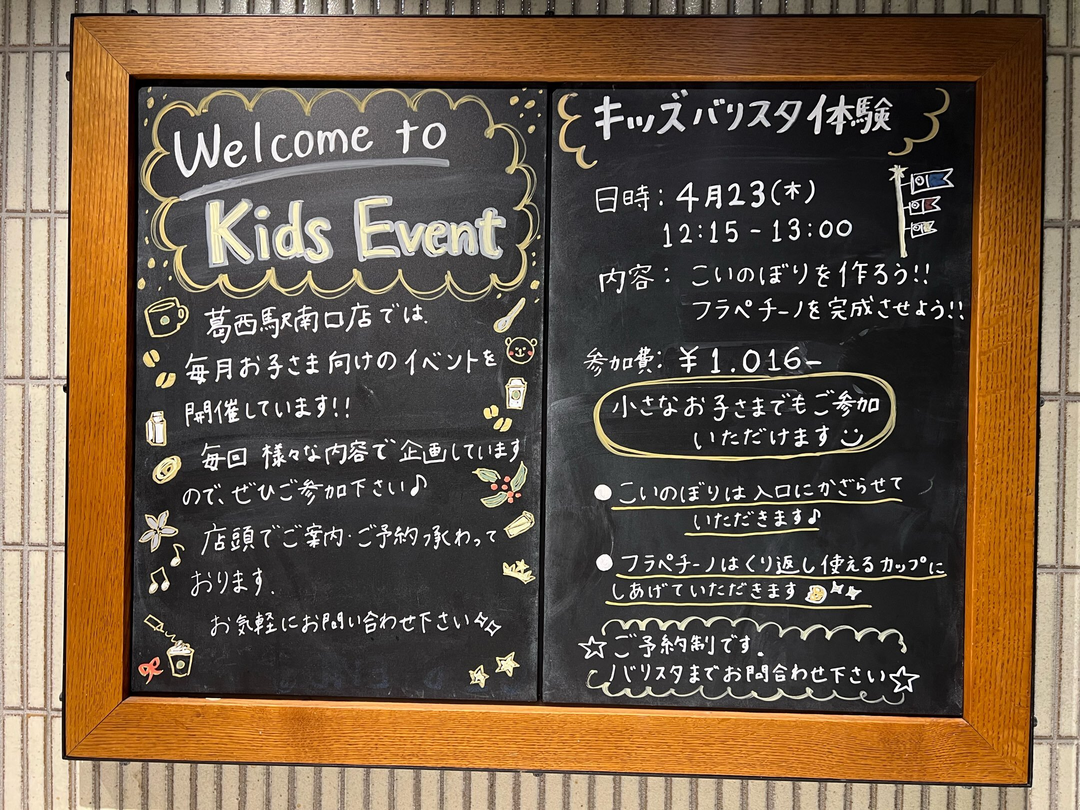 Welcome to
Kids Event
葛西駅南口店では、
毎月お子さま向けのイベントを
開催しています!!
毎回 様々な内容で企画しています
ので、ぜひご参加下さい♪
店頭でご案内・ご予約承わって
おります。
お気軽にお問い合わせ下さい
キッズバリスタ体験
日時：4月23(木)
12:15-13:00
内容：こいのぼりを作ろう!!
フラペチーノを完成させよう!!
参加費：¥1.016-
小さなお子さまでもご参加
いただけます
● こいのぼりは入口にかざらせて
いただきます♪
● フラペチーノはくり返し使えるカップに
しあげていただきます
☆ご予約制です。
バリスタまでお問合わせ下さい☆